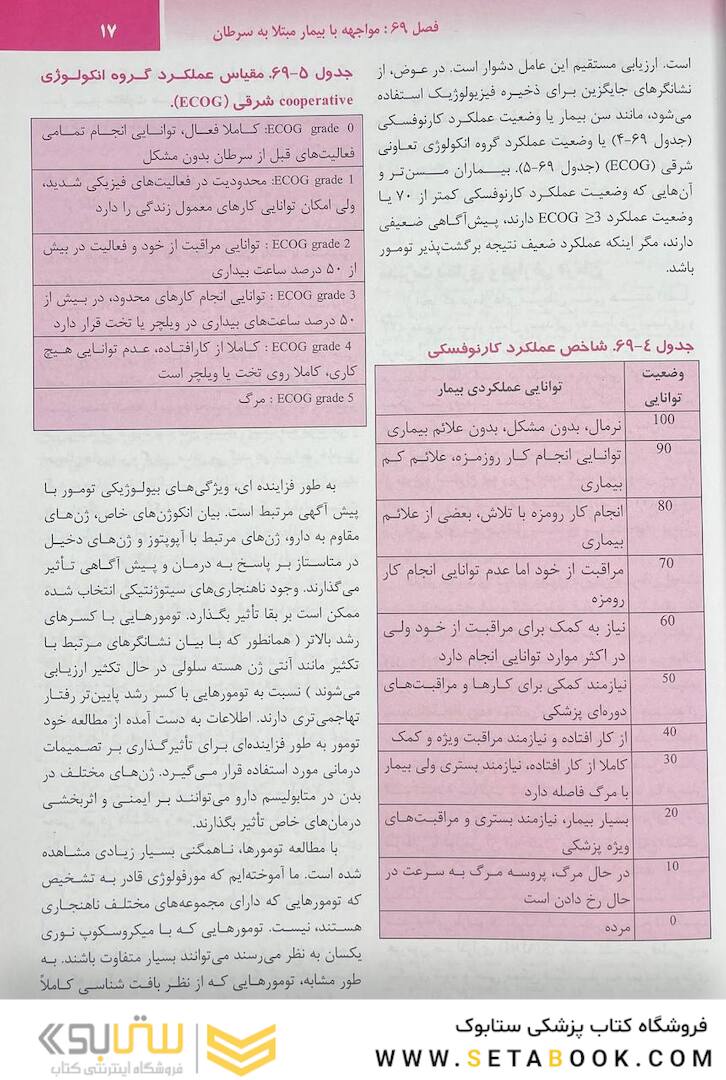 فصل ۶۹ : مواجهه با بیمار مبتلا به سرطان
۱۷
است. ارزیابی مستقیم این عامل دشوار است. در عوض، از
نشانگرهای جایگزین برای ذخیره فیزیولوژیک استفاده
می‌شود، مانند سن بیمار یا وضعیت عملکرد کارنوفسکی
(جدول ۶۹-۴) یا وضعیت عملکرد گروه انکولوژی تعاونی
شرقی (ECOG) (جدول ۶۹-۵). بیماران مسن‌تر و
آن‌هایی که وضعیت عملکرد کارنوفسکی کمتر از ۷۰ یا
وضعیت عملکرد ECOG ≥3 دارند، پیش‌آگاهی ضعیفی
دارند، مگر اینکه عملکرد ضعیف نتیجه برگشت‌پذیر تومور
باشد.
جدول ۴-۶۹. شاخص عملکرد کارنوفسکی
وضعیت توانایی
توانایی عملکردی بیمار
100
نرمال، بدون مشکل، بدون علائم بیماری
90
توانایی انجام کار روزمزه، علائم کم
بیماری
80
انجام کار رومزه با تلاش، بعضی از علائم
بیماری
70
مراقبت از خود اما عدم توانایی انجام کار
رومزه
60
نیاز به کمک برای مراقبت از خود ولی
در اکثر موارد توانایی انجام دارد
50
نیازمند کمکی برای کارها و مراقبت‌های
دوره‌ای پزشکی
40
از کار افتاده و نیازمند مراقبت ویژه و کمک
30
کاملا از کار افتاده، نیازمند بستری ولی بیمار
با مرگ فاصله دارد
20
بسیار بیمار، نیازمند بستری و مراقبت‌های
ویژه پزشکی
10
در حال مرگ، پروسه مرگ به سرعت در
حال رخ دادن است
0
مرده
جدول ۵-۶۹. مقیاس عملکرد گروه انکولوژی
cooperative شرقی (ECOG).
ECOG grade 0: کاملا فعال، توانایی انجام تمامی
فعالیت‌های قبل از سرطان بدون مشکل
ECOG grade 1: محدودیت در فعالیت‌های فیزیکی شدید،
ولی امکان توانایی کارهای معمول زندگی را دارد
ECOG grade 2 : توانایی مراقبت از خود و فعالیت در بیش
از ۵۰ درصد ساعت بیداری
ECOG grade 3 : توانایی انجام کارهای محدود، در بیش از
۵۰ درصد ساعت‌های بیداری در ویلچر یا تخت قرار دارد
ECOG grade 4 : کاملا از کارافتاده، عدم توانایی هیچ
کاری، کاملا روی تخت یا ویلچر است
ECOG grade 5 : مرگ
به طور فزاینده ای، ویژگی‌های بیولوژیکی تومور با
پیش آگهی مرتبط است. بیان انکوژن‌های خاص، ژن‌های
مقاوم به دارو، ژن‌های مرتبط با آپوپتوز و ژن‌های دخیل
در متاستاز بر پاسخ به درمان و پیش آگاهی تأثیر
می‌گذارند. وجود ناهنجاری‌های سیتوژنتیکی انتخاب شده
ممکن است بر بقا تأثیر بگذارد. تومورهایی با کسرهای
رشد بالاتر ( همانطور که با بیان نشانگرهای مرتبط با
تکثیر مانند آنتی ژن هسته سلولی در حال تکثیر ارزیابی
می‌شوند ) نسبت به تومورهایی با کسر رشد پایین‌تر رفتار
تهاجمی‌تری دارند. اطلاعات به دست آمده از مطالعه خود
تومور به طور فزاینده‌ای برای تأثیرگذاری بر تصمیمات
درمانی مورد استفاده قرار می‌گیرد. ژن‌های مختلف در
بدن در متابولیسم دارو می‌توانند بر ایمنی و اثربخشی
درمان‌های خاص تأثیر بگذارند.
با مطالعه تومورها، ناهمگنی بسیار زیادی مشاهده
شده است. ما آموخته‌ایم که مورفولوژی قادر به تشخیص
که تومورهایی که دارای مجموعه‌های مختلف ناهنجاری
هستند، نیست. تومورهایی که با میکروسکوپ نوری
یکسان به نظر می‌رسند می‌توانند بسیار متفاوت باشند. به
طور مشابه، تومورهایی که از نظر بافت شناسی کاملاً
فروشگاه کتاب پزشکی ستابوک
WWW.SETABOOK.COM
ستابوک
فروشگاه اینترنتی کتاب